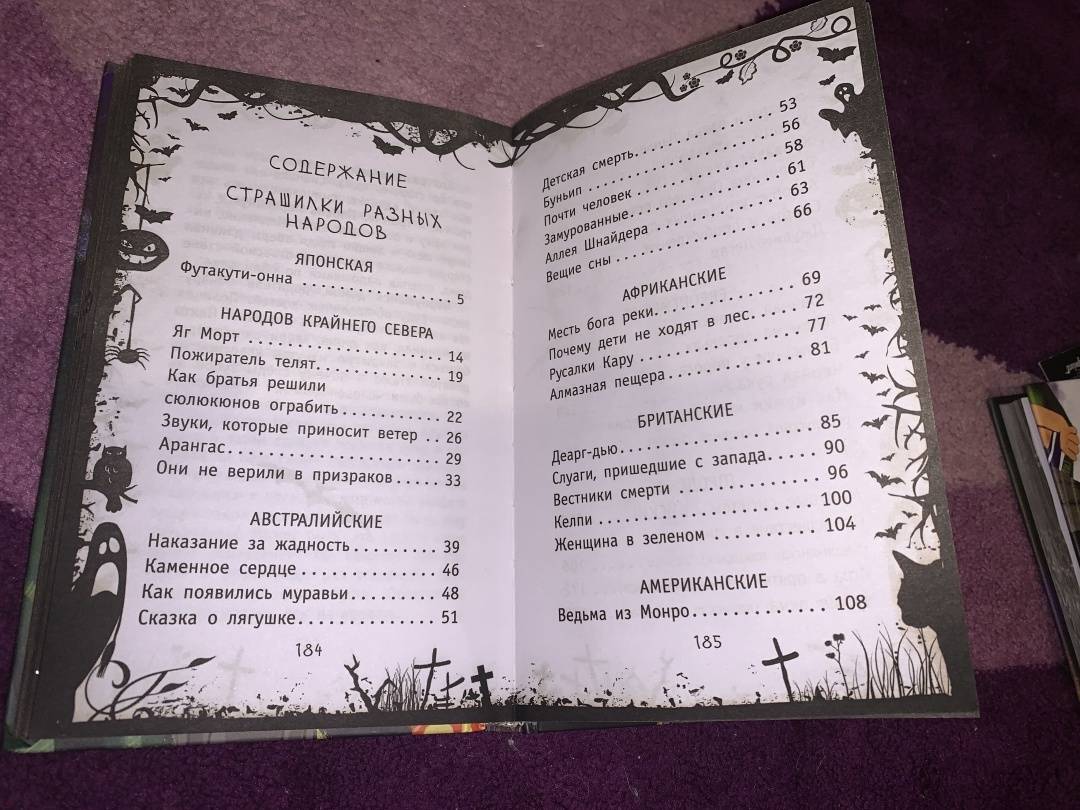 СОДЕРЖАНИЕ
СТРАШИЛКИ РАЗНЫХ
НАРОДОВ
ЯПОНСКАЯ
Футакути-онна ................. 5
НАРОДОВ КРАЙНЕГО СЕВЕРА
Яг Морт ..................... 14
Пожиратель телят............. 19
Как братья решили
сюлюкюнов ограбить............ 22
Звуки, которые приносит ветер .. 26
Арангас....................... 29
Они не верили в призраков..... 33
АВСТРАЛИЙСКИЕ
Наказание за жадность......... 39
Каменное сердце ............. 46
Как появились муравьи........ 48
Сказка о лягушке.............. 51
184
Детская смерть................ 53
Буньип ...................... 56
Почти человек ................ 58
Замурованные.................. 61
Аллея Шнайдера ............... 63
Вещие сны .................... 66
АФРИКАНСКИЕ
Месть бога реки............... 69
Почему дети не ходят в лес..... 72
Русалки Кару ................. 77
Алмазная пещера............... 81
БРИТАНСКИЕ
Деарг-дью..................... 85
Слуаги, пришедшие с запада..... 90
Вестники смерти .............. 96
Келпи ....................... 100
Женщина в зеленом ........... 104
АМЕРИКАНСКИЕ
Ведьма из Монро.............. 108
185